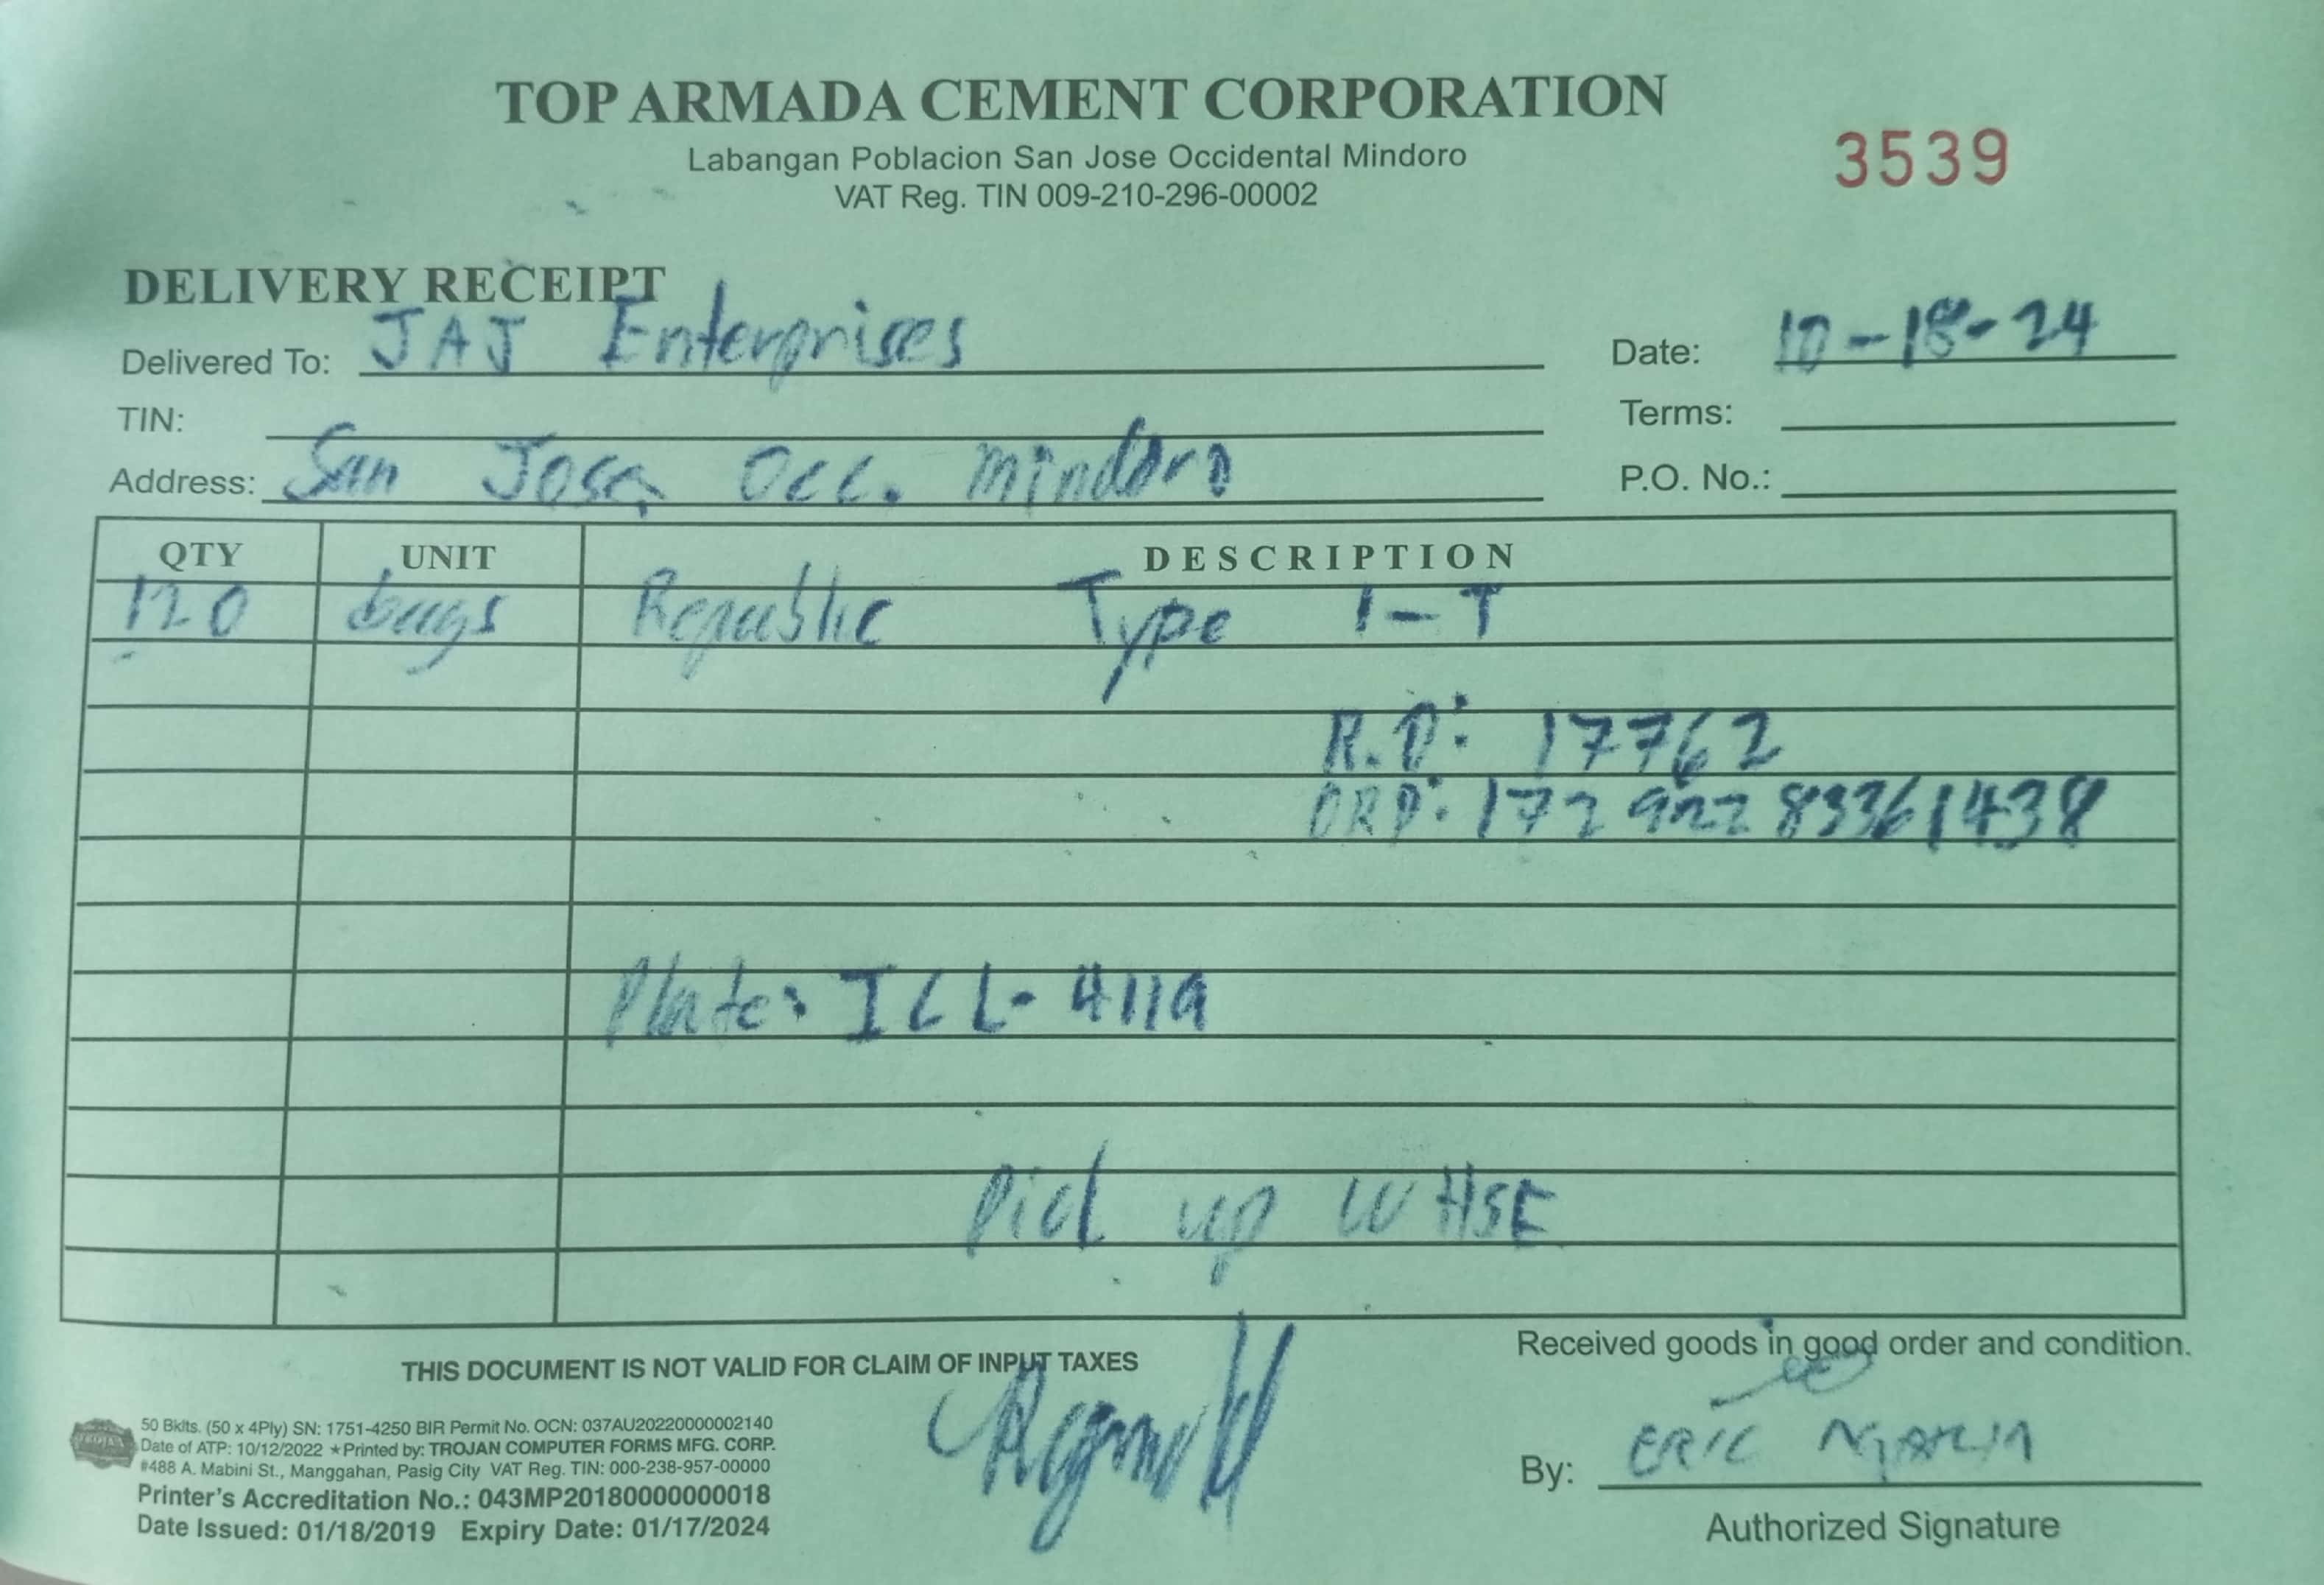 TOP ARMADA CEMENT CORPORATION
Labangan Poblacion San Jose Occidental Mindoro
3539
VAT Reg. TIN 009-210-296-00002
DELIVERY RECEIPT
Delivered To: JAJ Enterprises
Date: 10-18-24
TIN:
Terms:
Address: San Jose, Occ. Mindoro
P.O. No.:
QTY UNIT DESCRIPTION
120 bags Republic Type 1-T
R.O: 17762
ORD: 172922 83361438
Plate: ICL-4119
Pick up WHSE
THIS DOCUMENT IS NOT VALID FOR CLAIM OF INPUT TAXES
Received goods in good order and condition.
50 Bklts. (50 x 4Ply) SN: 1751-4250 BIR Permit No. OCN: 037AU20220000002140
Date of ATP: 10/12/2022 ★Printed by: TROJAN COMPUTER FORMS MFG. CORP.
#488 A. Mabini St., Manggahan, Pasig City VAT Reg. TIN: 000-238-957-00000
Printer's Accreditation No.: 043MP20180000000018
Date Issued: 01/18/2019 Expiry Date: 01/17/2024
TROJAN
By: ERIC
Authorized Signature